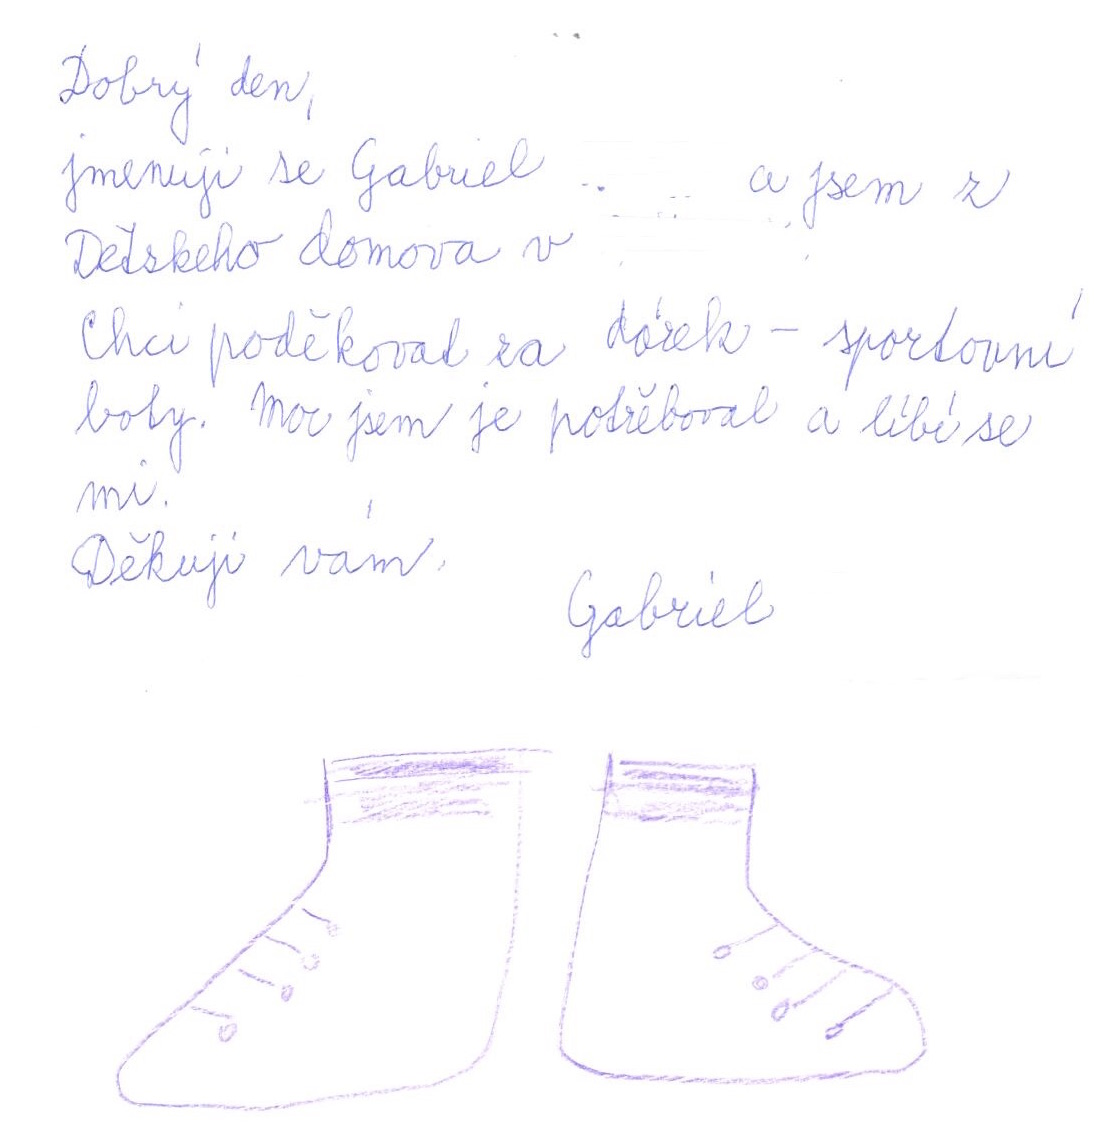 Dobrý den,
jmenuji se Gabriel a jsem z
Detskeho domova v
Chci poděkovat za dárek - sportovní
boty. Moc jsem je potřěboval a líbí se
mi.
Děkuji vám.
Gabriel